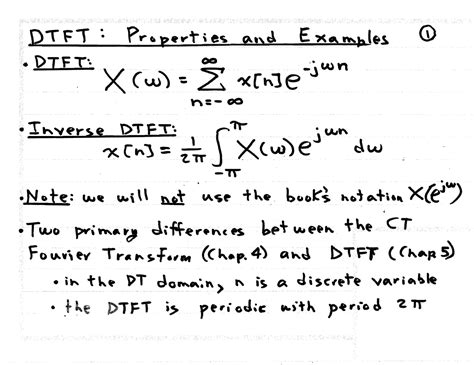 DTFT: Properties and Examples ①
• DTFT: X(ω) = ∑_{n=-∞}^{∞} x[n]e^{-jωn}
• Inverse DTFT: x[n] = \frac{1}{2π} ∫_{-π}^{π} X(ω)e^{jωn} dω
• Note: we will not use the book's notation X(e^{jω})
• Two primary differences between the CT
Fourier Transform (Chap. 4) and DTFT (Chap 5)
• in the DT domain, n is a discrete variable
• the DTFT is periodic with period 2π